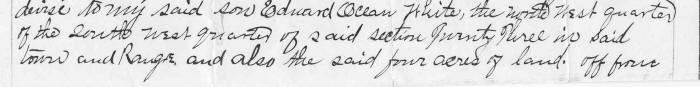 devise to my said son Edward Ocean White, the north west quarter
of the South west quarter of said section Twenty Three in said
town and Range and also the said four acres of land. off from